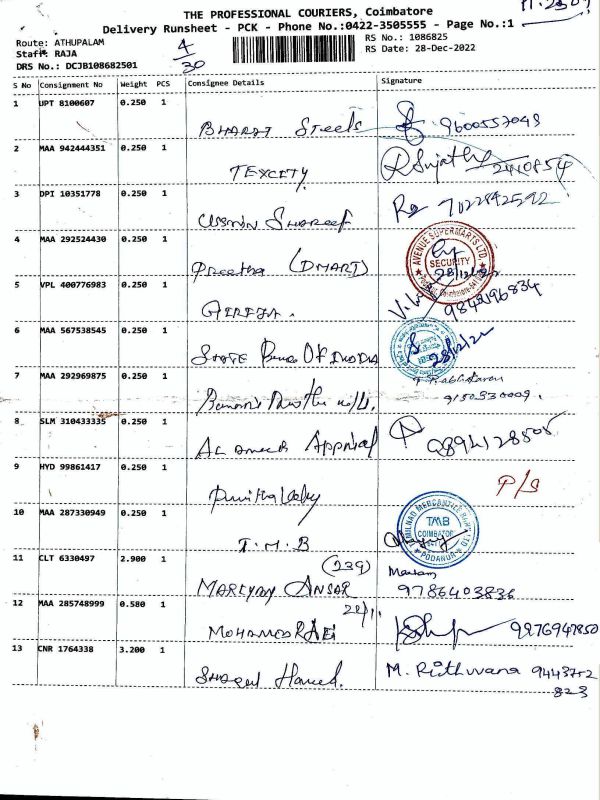 THE PROFESSIONAL COURIERS, Coimbatore
Delivery Runsheet - PCK - Phone No.:0422-3505555 - Page No.:1
Route: ATHUPALAM 4/30 RS No.: 1086825
Staff: RAJA RS Date: 28-Dec-2022
DRS No.: DCJB108682501
S No Consignment No Weight PCS Consignee Details Signature
1 UPT 8100607 0.250 1
Steels 9600557048
2 MAA 942444351 0.250 1
TEXCITY
3 DPI 10351778 0.250 1
Shareef 7022842592
4 MAA 292524430 0.250 1
Preetha (DMART) AVENUE SUPERMARTS LTD. SECURITY 28/12/22
5 VPL 400776983 0.250 1
GIREJA. 9842196834
6 MAA 567538545 0.250 1
STATE Bank Of INDIA 28/12/22
7 MAA 292969875 0.250 1
9150330009.
8 SLM 310433335 0.250 1
AL 9894128505
9 HYD 99861417 0.250 1
P/S
10 MAA 287330949 0.250 1
T.M.B TAMILNAD MERCANTILE BANK LTD. TMB COIMBATORE PODANUR
11 CLT 6330497 2.900 1
(239)
MARIYAM ANSAR Mariam 9786403836
12 MAA 285748999 0.580 1
MOHAMED RAFI 9276947850
13 CNR 1764338 3.200 1
Hameed. M. Rithvana 9443752
823